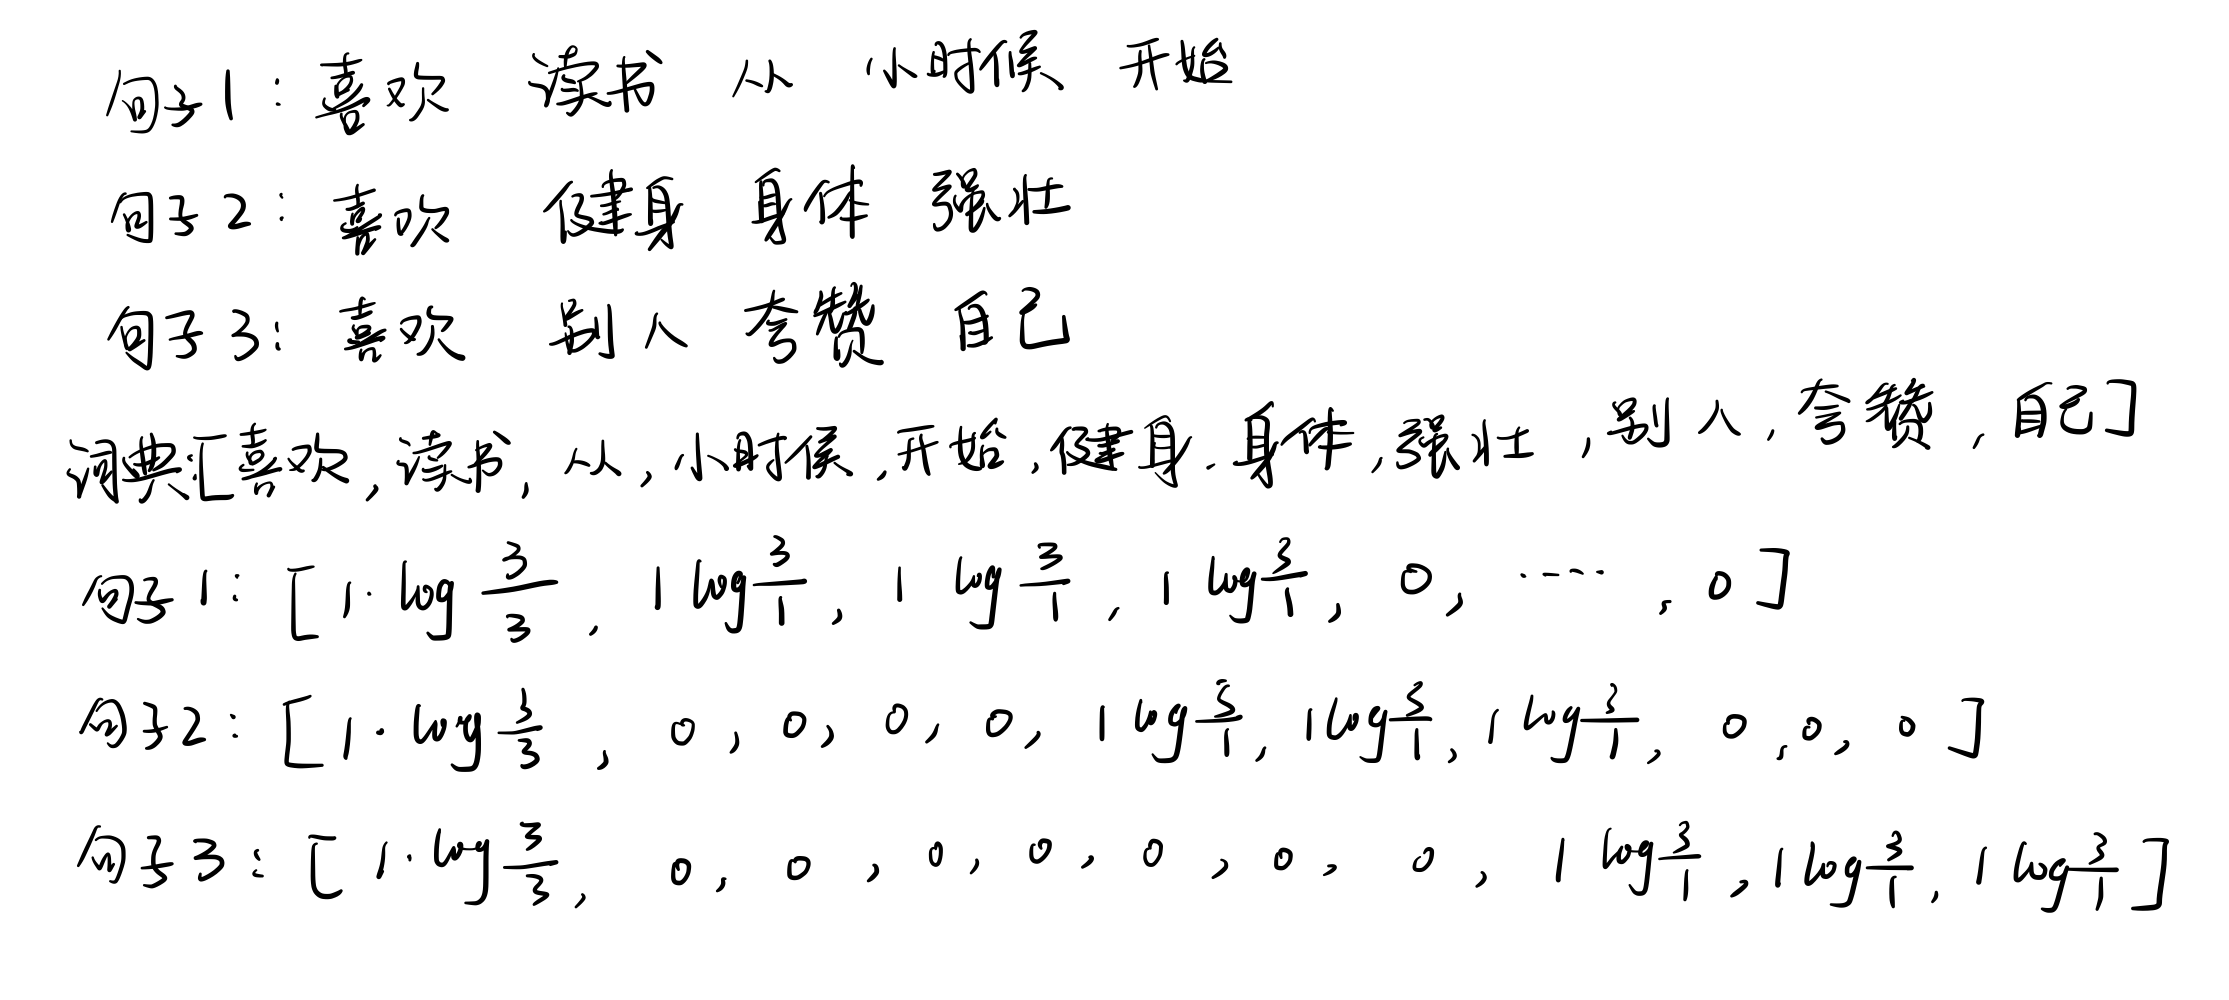 句子1：喜欢 读书 从 小时候 开始
句子2：喜欢 健身 身体 强壮
句子3：喜欢 别人 夸赞 自己
词典：[喜欢，读书，从，小时候，开始，健身，身体，强壮，别人，夸赞，自己]
句子1：[1·log 3/3, 1 log 3/1, 1 log 3/1, 1 log 3/1, 0, ……, 0]
句子2：[1·log 3/3, 0, 0, 0, 0, 1 log 3/1, 1 log 3/1, 1 log 3/1, 0, 0, 0]
句子3：[1·log 3/3, 0, 0, 0, 0, 0, 0, 0, 1 log 3/1, 1 log 3/1, 1 log 3/1]